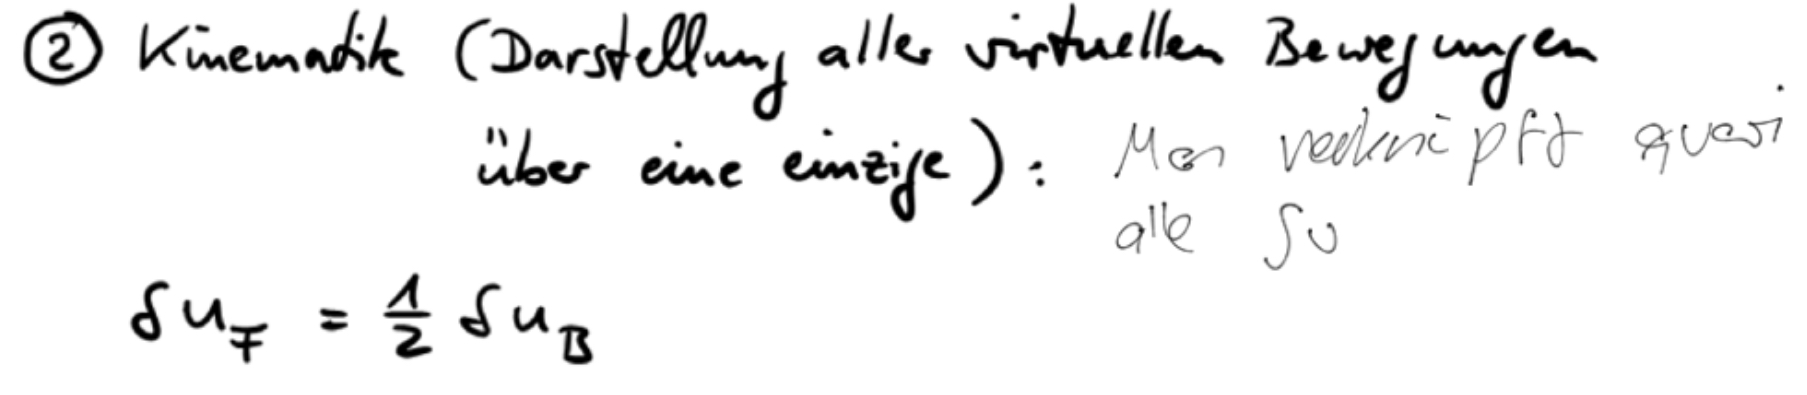 ② Kinematik (Darstellung aller virtuellen Bewegungen
über eine einzige): Man verknüpft quasi
alle δu
δu_F = 1/2 δu_B